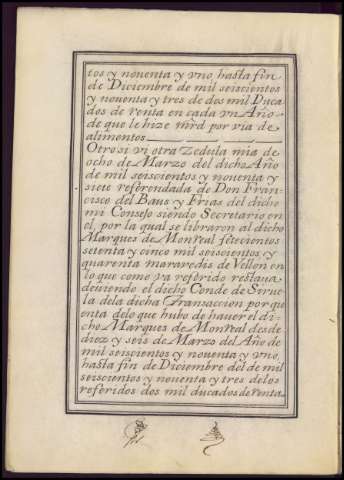 tos y nouenta y vno, hasta fin
de Diciembre de mil seiscientos
y nouenta y tres de dos mil Duca
dos de renta en cada vn Año
de que le hize mrd por via de
alimentos
Otro si vi otra Zedula mia de
ocho de Marzo del dicho Año
de mil seiscientos y nouenta y
siete referendada de Don Fran-
cisco del Baus y Frias del dicho
mi Consejo siendo Secretario en
el, por la qual se libraron al dicho
Marques de Monreal setecientos
setenta y cinco mil seiscientos y
quarenta maravedis de Vellon en
lo que como va referido restaua
deuiendo el dicho Conde de Sirue
la dela dicha Transaccion por qu
enta delo que hubo de hauer el di-
cho Marques de Monreal desde
diez y seis de Marzo del Año de
mil seiscientos y nouenta y vno,
hasta fin de Diciembre del de mil
seiscientos y nouenta y tres delos
referidos dos mil ducados de renta